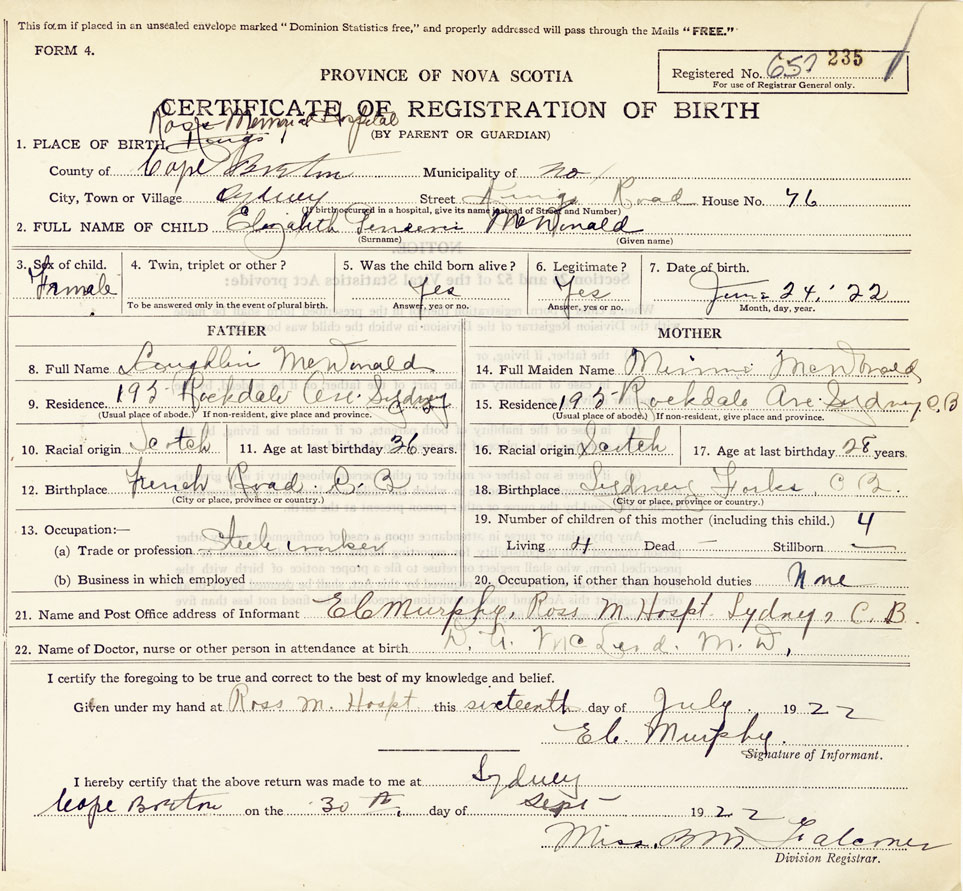 This form if placed in an unsealed envelope marked "Dominion Statistics free," and properly addressed will pass through the Mails "FREE."
FORM 4.
Registered No. 657 235
For use of Registrar General only.
PROVINCE OF NOVA SCOTIA
CERTIFICATE OF REGISTRATION OF BIRTH
Ross Memorial Hospital
(BY PARENT OR GUARDIAN)
1. PLACE OF BIRTH Kings
County of Cape Breton Municipality of no
City, Town or Village Sydney Street Kings Road House No. 76
(If birth occurred in a hospital, give its name instead of Street and Number)
2. FULL NAME OF CHILD Elizabeth McDonald
(Surname) (Given name)
3. Sex of child. 4. Twin, triplet or other? 5. Was the child born alive? 6. Legitimate? 7. Date of birth.
Female Yes Yes June 24, '22
To be answered only in the event of plural birth. Answer, yes or no. Answer, yes or no. Month, day, year.
FATHER MOTHER
8. Full Name Laughlin McDonald 14. Full Maiden Name Minnie McDonald
9. Residence 195 Rockdale Ave. Sydney 15. Residence 195 Rockdale Ave Sydney C B
(Usual place of abode.) If non-resident, give place and province. (Usual place of abode.) If non-resident, give place and province.
10. Racial origin Scotch 11. Age at last birthday 36 years. 16. Racial origin Scotch 17. Age at last birthday 28 years.
12. Birthplace French Road C. B 18. Birthplace Sydney Forks, C B.
(City or place, province or country.) (City or place, province or country.)
13. Occupation:— 19. Number of children of this mother (including this child.) 4
(a) Trade or profession Steel worker Living 4 Dead — Stillborn —
(b) Business in which employed 20. Occupation, if other than household duties None
21. Name and Post Office address of Informant E C Murphy, Ross M. Hospt. Sydney, C. B.
22. Name of Doctor, nurse or other person in attendance at birth M. D.
I certify the foregoing to be true and correct to the best of my knowledge and belief.
Given under my hand at Ross M. Hospt this sixteenth day of July 1922
E C. Murphy.
Signature of Informant.
I hereby certify that the above return was made to me at Sydney
Cape Breton on the 30th day of Sept 1922
Miss B M Falconer
Division Registrar.